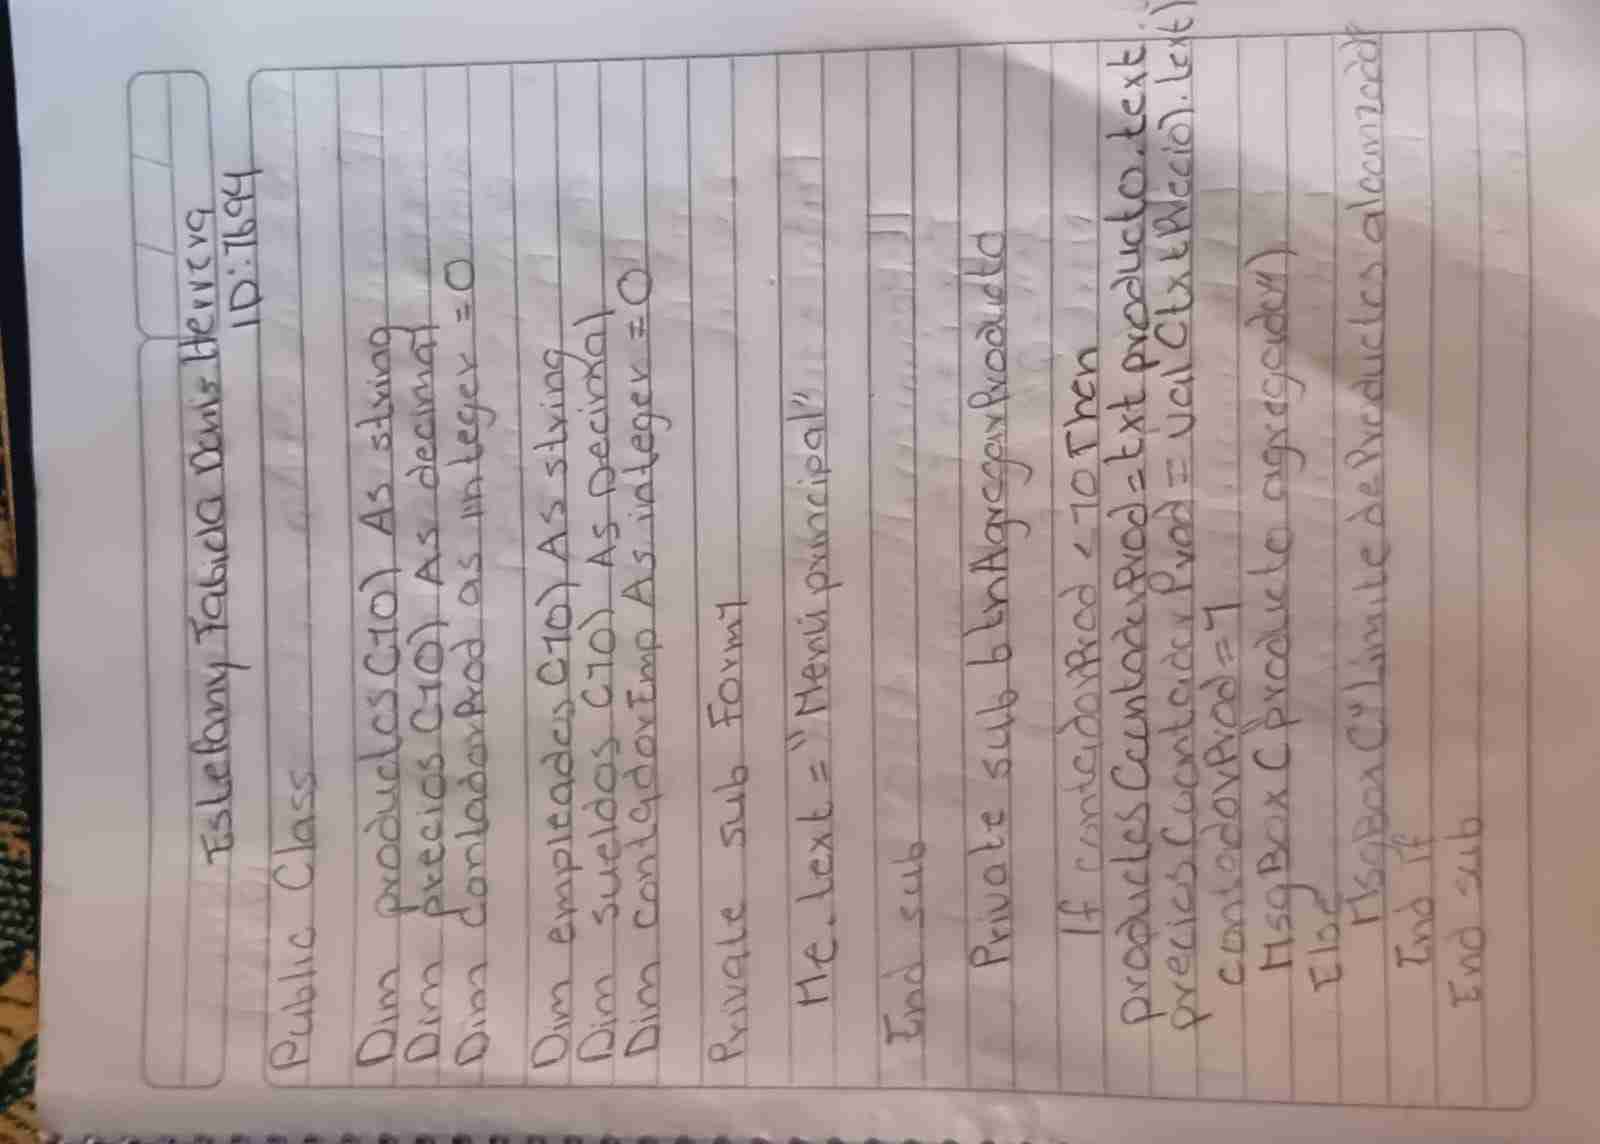 Estefany Fabiola Danis Herrera
ID: 7694
Public Class
Dim productos (10) As string
Dim precios (10) As decimal
Dim contadorProd as integer = 0
Dim empleados (10) As string
Dim sueldos (10) As Decimal
Dim contadorEmp As integer = 0
Private sub Form1
Me.text = "Menú principal"
End sub
Private sub btnAgregarProducto
If contadorProd < 10 Then
productos(contadorProd = txt producto.text)
precios(contador Prod = val (txtPrecio).text)
contadorProd = 1
MsgBox ("producto agregado")
Else
MsgBox ("Límite de Productos alcanzado"
End if
End sub